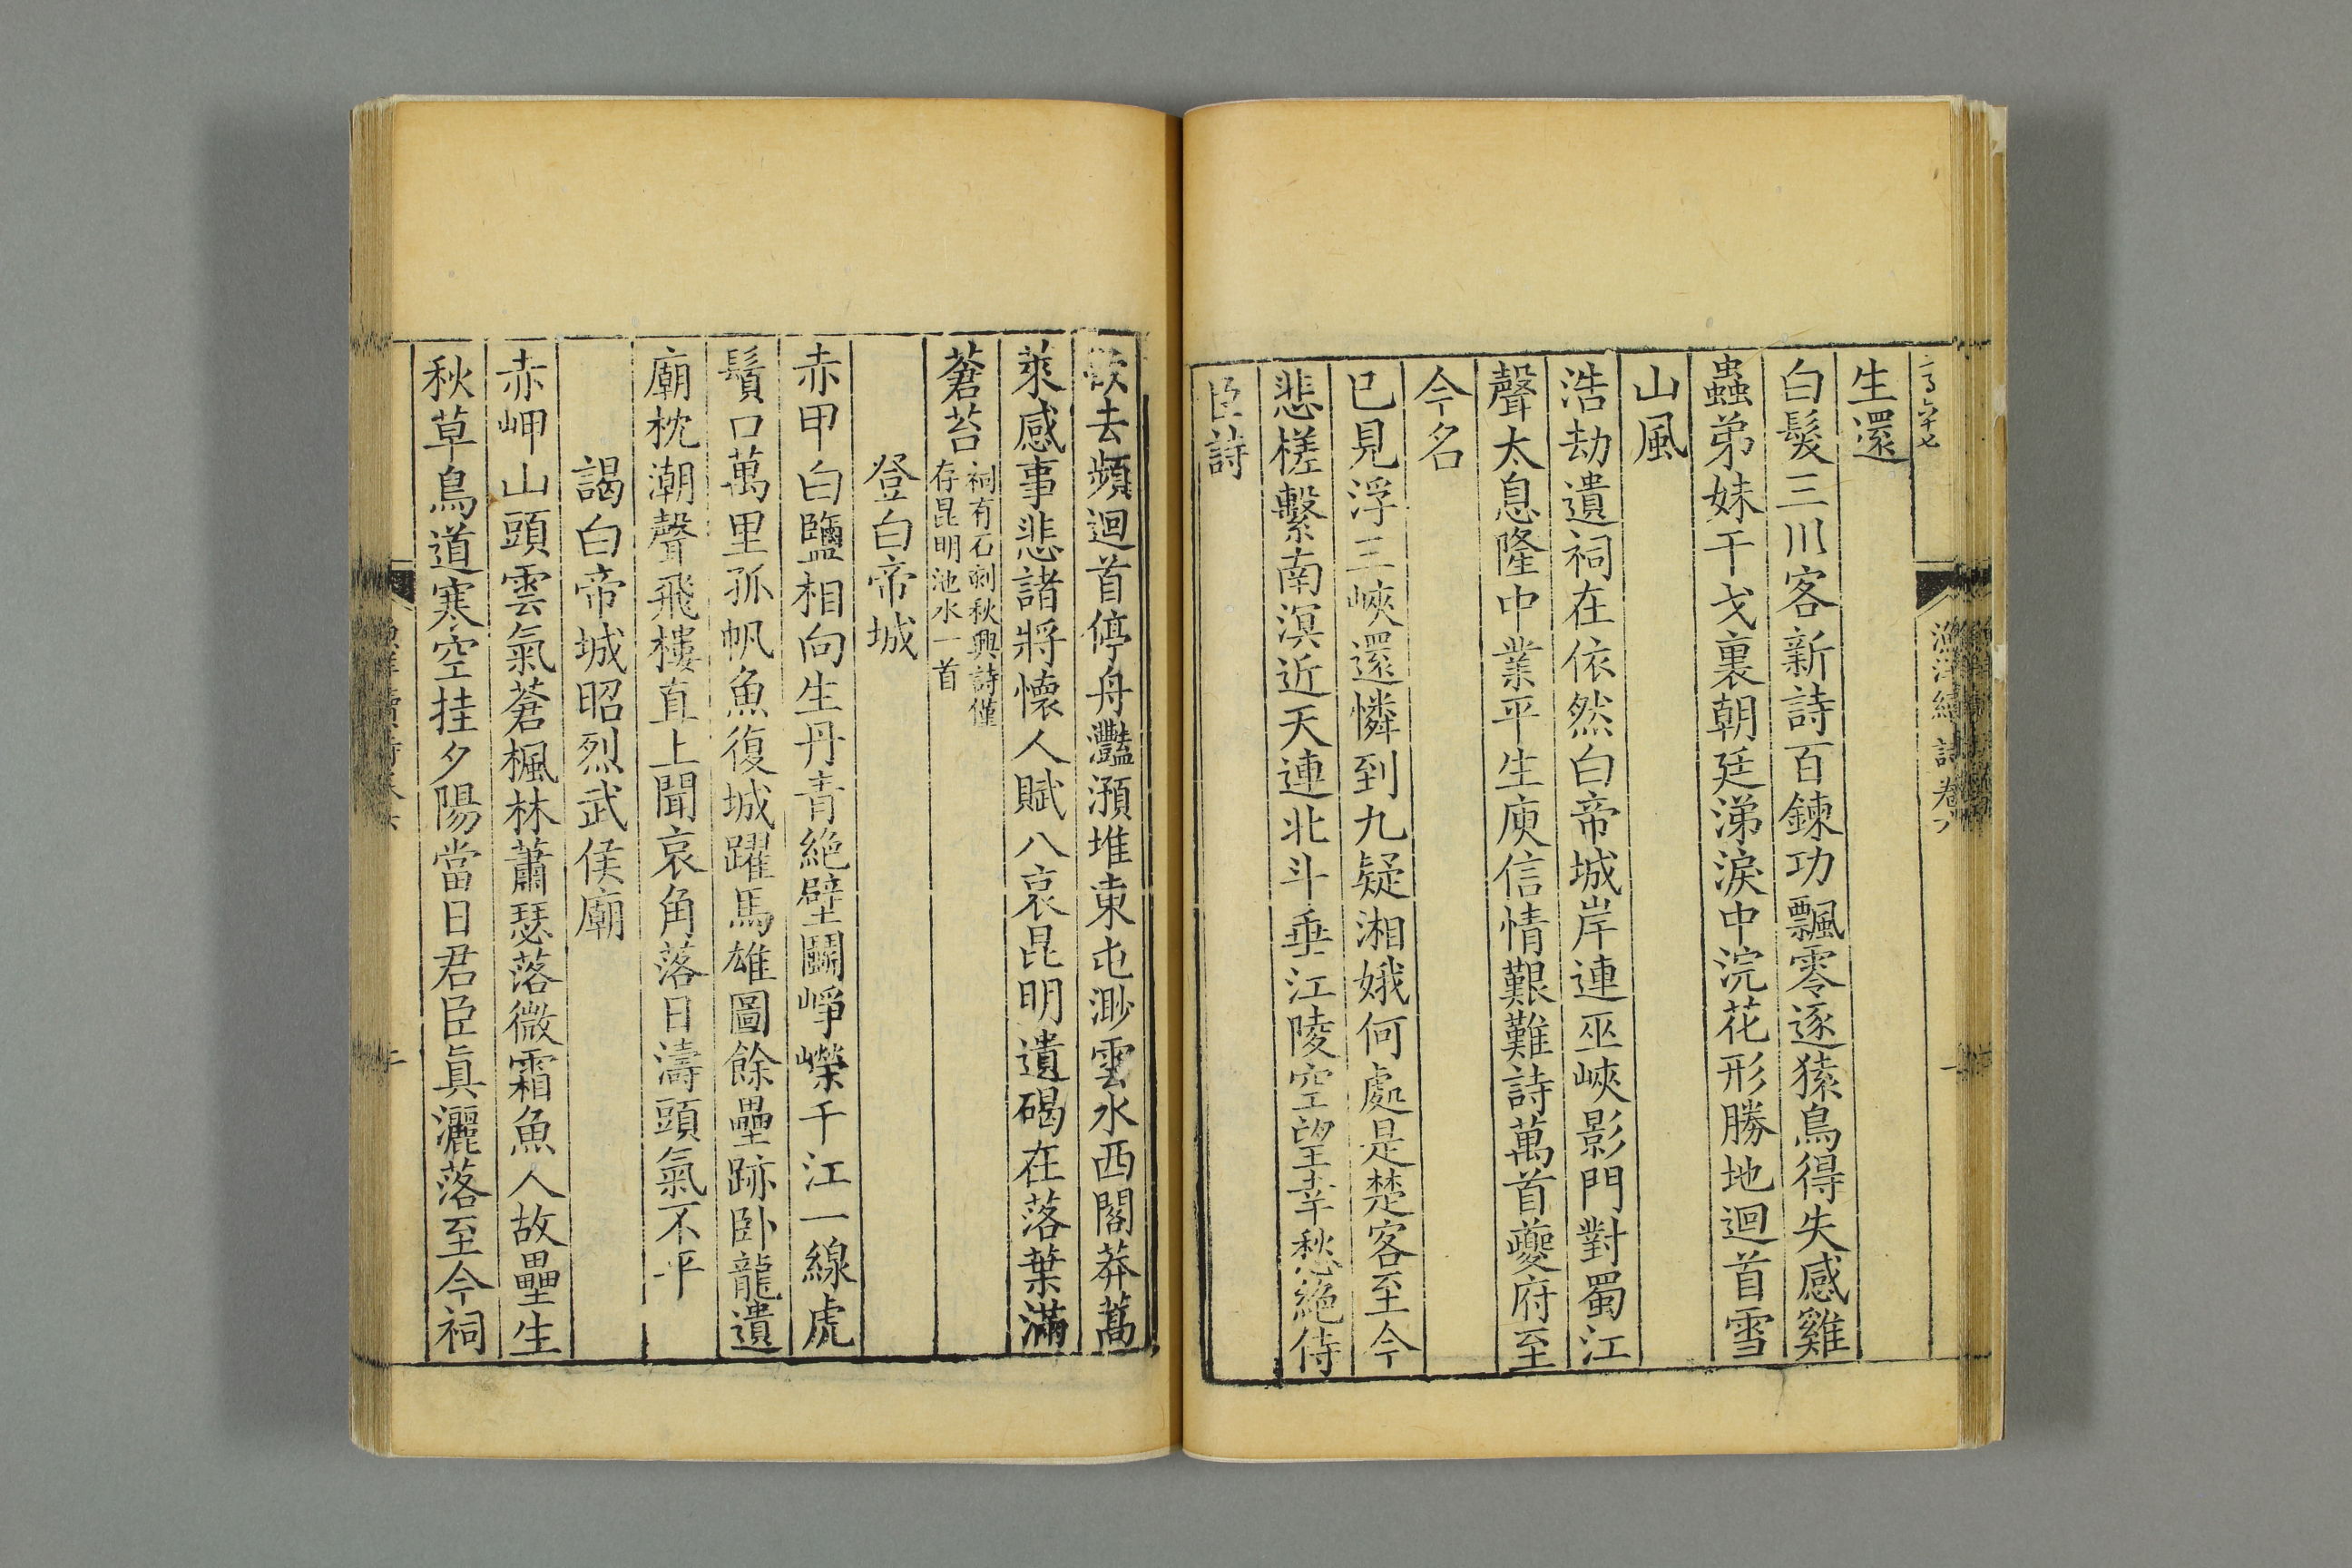 生還
白髮三川客新詩百鍊功飄零逐猿鳥得失感雞
蟲弟妹干戈裏朝廷涕淚中浣花形勝地迴首雪
山風
浩劫遺祠在依然白帝城岸連巫峽影門對蜀江
聲太息隆中業平生庾信情艱難詩萬首夔府至
今名
已見浮三峽還憐到九疑湘娥何處是楚客至今
悲槎繫南溟近天連北斗垂江陵空望幸愁絕侍
臣詩
欲去頻迴首停舟灩澦堆東屯渺雲水西閣莽蒿
萊感事悲諸將懷人賦八哀昆明遺碣在落葉滿
蒼苔
祠有石刻秋興詩僅
存昆明池水一首
登白帝城
赤甲白鹽相向生丹青絕壁鬭崢嶸千江一線虎
鬚口萬里孤帆魚復城躍馬雄圖餘壘跡卧龍遺
廟枕潮聲飛樓直上聞哀角落日濤頭氣不平
謁白帝城昭烈武侯廟
赤岬山頭雲氣蒼楓林蕭瑟落微霜魚人故壘生
秋草鳥道寒空挂夕陽當日君臣真灑落至今祠